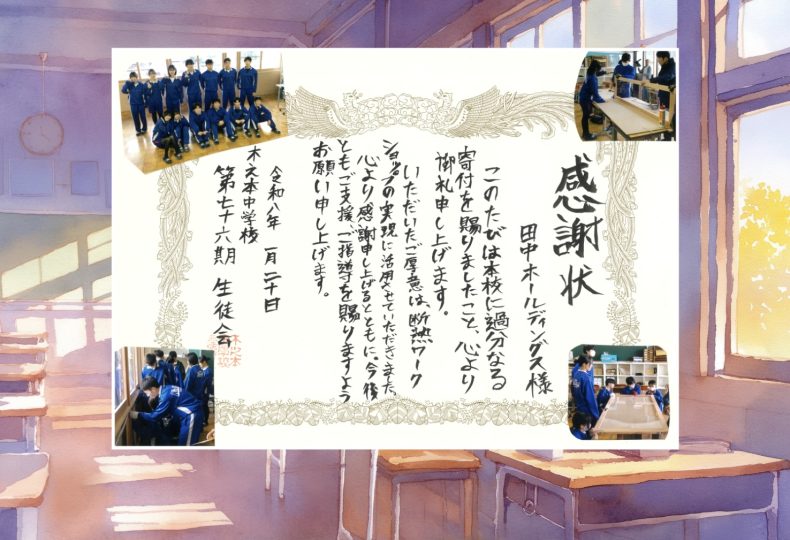 感謝状
田中ホールディングス様
このたびは本校に過分なる
寄付を賜りましたこと、心より
御礼申し上げます。
いただいたご厚意は、断熱ワーク
ショップの実現に活用させていただきました。
心より感謝申し上げるとともに、今後
ともご支援ご指導を賜りますよう
お願い申し上げます。
令和八年 一月二十日
木之本中学校
第七十六期 生徒会